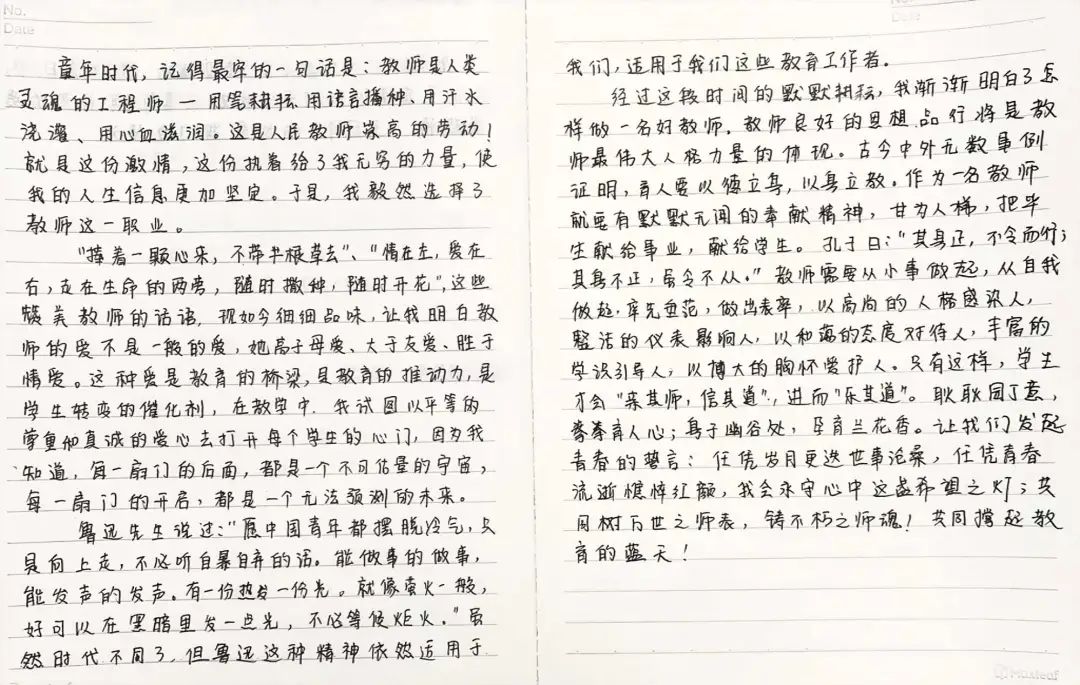 No.
Date
童年时代，记得最牢的一句话是：教师是人类
灵魂的工程师 — 用笔耕耘、用语言播种、用汗水
浇灌、用心血滋润。这是人民教师崇高的劳动！
就是这份激情，这份执着给了我无穷的力量，使
我的人生信息更加坚定。于是，我毅然选择了
教师这一职业。
"捧着一颗心来，不带半根草去"、"情在左，爱在
右，走在生命的两旁，随时撒种，随时开花"，这些
精美教师的话语，现如今细细品味，让我明白教
师的爱不是一般的爱，她高于母爱、大于友爱、胜于
情爱。这种爱是教育的桥梁，是教育的推动力，是
学生转变的催化剂，在教学中，我试图以平等的
尊重和真诚的爱心去打开每个学生的心门，因为我
知道，每一扇门的后面，都是一个不可估量的宇宙，
每一扇门的开启，都是一个无法预测的未来。
鲁迅先生说过："愿中国青年都摆脱冷气，只
是向上走，不必听自暴自弃的话。能做事的做事，
能发声的发声。有一份热发一份光。就像萤火一般，
好可以在黑暗里发一点光，不必等候炬火。"虽
然时代不同了，但鲁迅这种精神依然适用于
Date
我们，适用于我们这些教育工作者。
经过这段时间的默默耕耘，我渐渐明白了怎
样做一名好教师。教师良好的思想、品行将是教
师最伟大人格力量的体现。古今中外无数事例
证明，育人要以德立身，以身立教。作为一名教师
就要有默默无闻的奉献精神，甘为人梯，把毕
生献给事业，献给学生。孔子曰："其身正，不令而行；
其身不正，虽令不从。"教师需要从小事做起，从自我
做起，率先垂范，做出表率，以高尚的人格感染人，
整洁的仪表影响人，以和蔼的态度对待人，丰富的
学识引导人，以博大的胸怀爱护人。只有这样，学生
才会"亲其师，信其道"，进而"乐其道"。耿耿园丁意，
拳拳育人心；身于幽谷处，孕育兰花香。让我们发起
青春的誓言：任凭岁月更迭世事沧桑，任凭青春
流逝憔悴红颜，我会永守心中这盏希望之灯；共
同树万世之师表，铸不朽之师魂！共同撑起教
育的蓝天！
Maxleaf